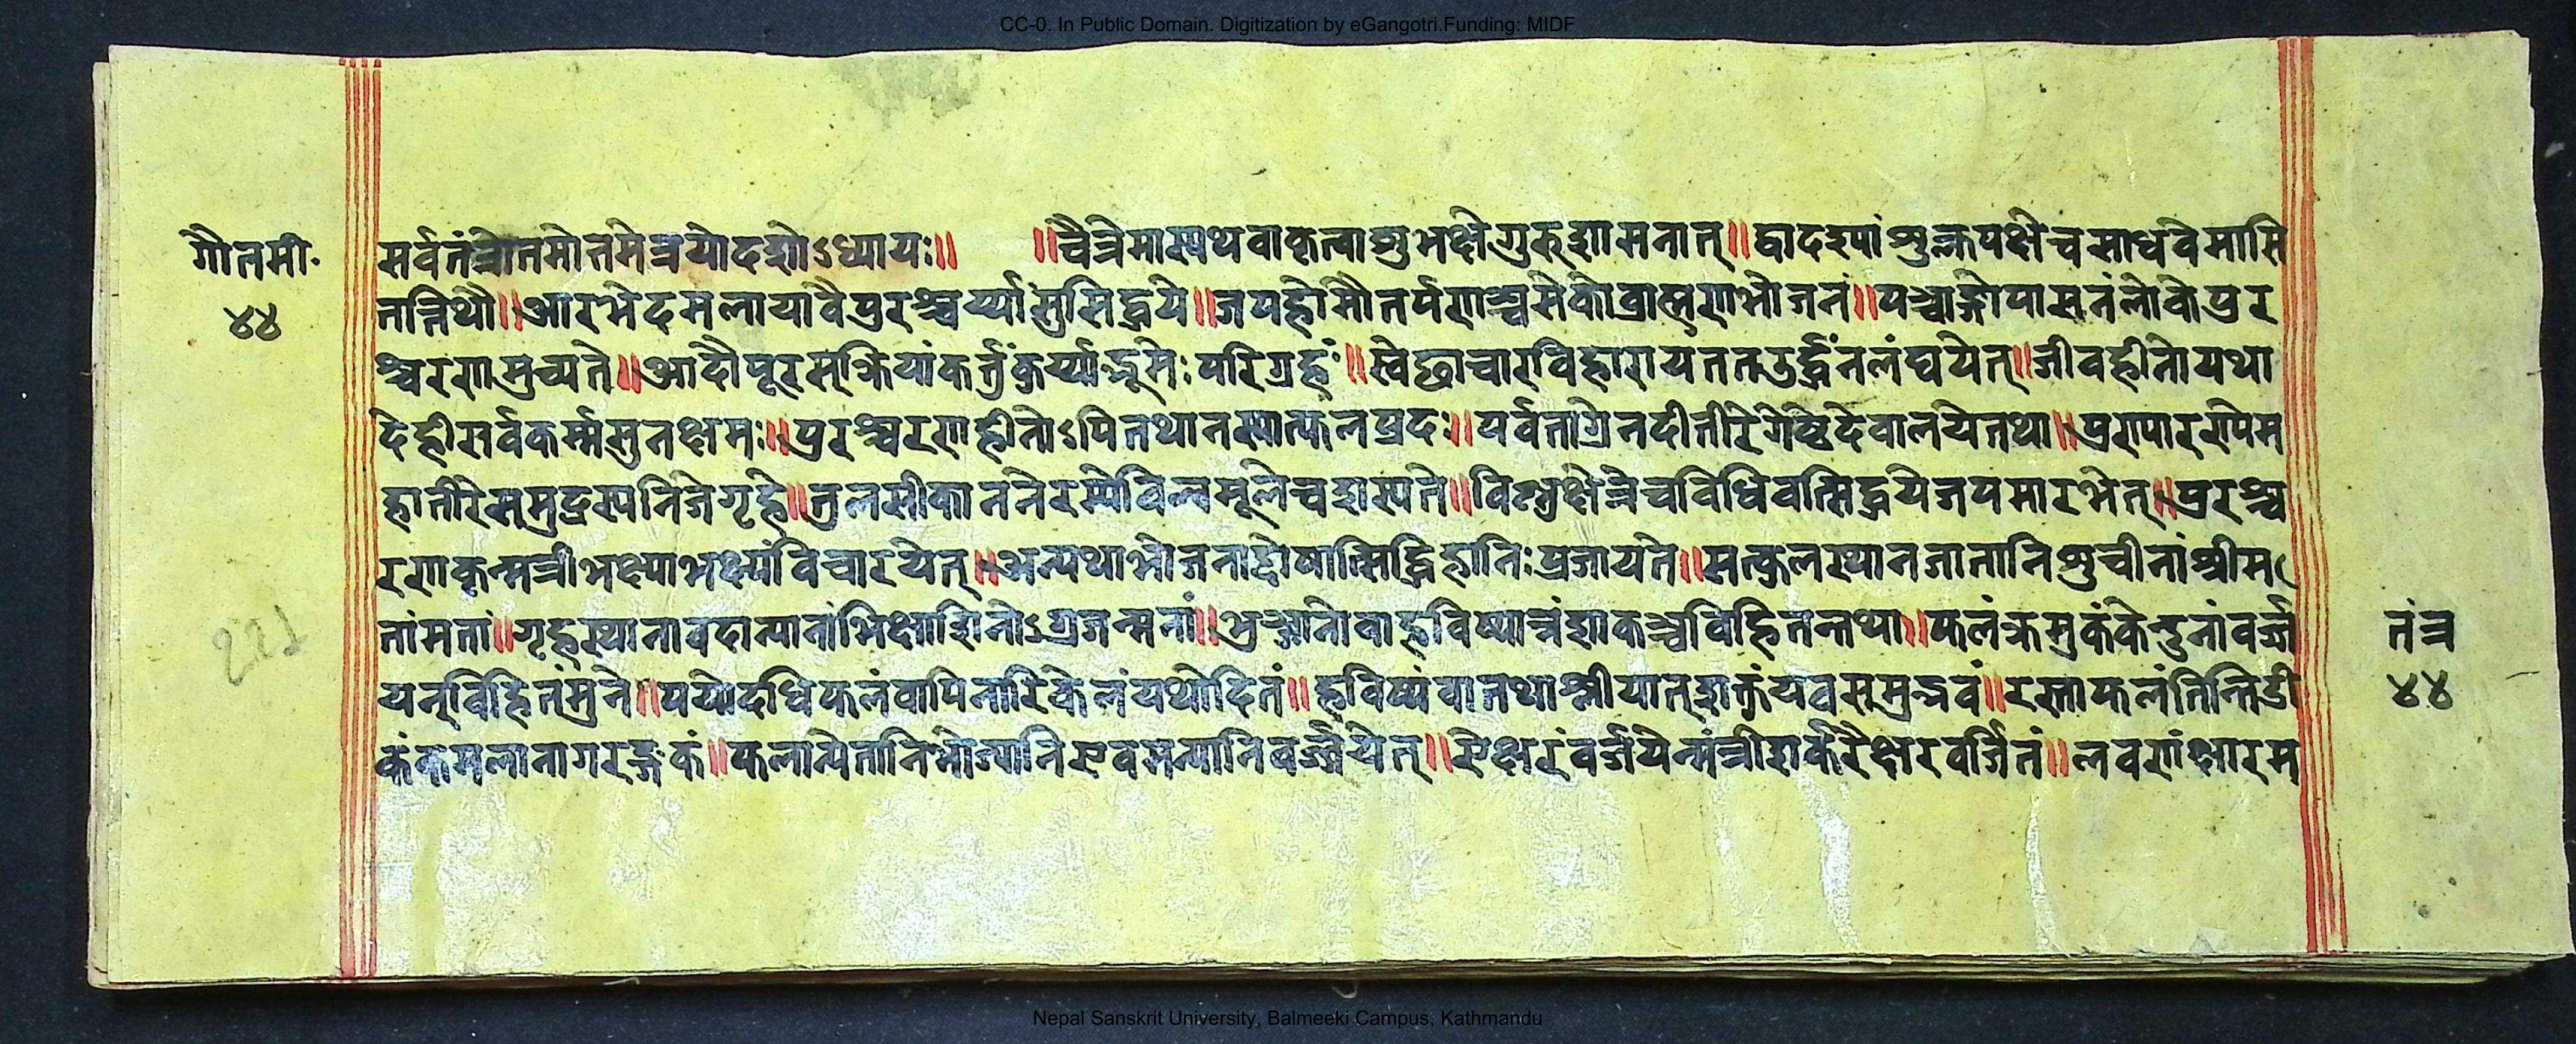 CC-0. In Public Domain. Digitization by eGangotri.Funding: MIDF
गौतमी॰
४४
सर्वतंत्रोतमोत्तमेत्रयोदशोऽध्यायः॥ ॥चैत्रेमास्यथवाकृत्वाशुभक्षेगुरुशासनात्॥द्वादश्यांशुक्लपक्षेचसाधवेमासि
तत्तिथौ॥आरभेदमलायावैपुरश्चर्य्यासुसिद्धये॥जपहोमौतर्पणञ्चसेकोब्राह्मणभोजनं॥पञ्चाङ्गोपासनंलोकेपुर
श्चरणमुच्यते॥आदौपूरस्क्रियांकर्त्तुंकुर्य्याद्भूमेःपरिग्रहं॥स्वेछाचारविहारायततउर्द्ध्वंनलंघयेत्॥जीवहीनोयथा
देहीसर्वकर्म्मसुनक्षमः॥पुरश्चरणहीनोऽपितथानस्यात्फलप्रदः॥पर्वताग्रेनदीतीरेगोष्ठेदेवालयेतथा॥पुरापाररपिम
हातीरेसमुद्रस्यनिजेगृहे॥तुलसीकाननेरम्येविल्वमूलेचशस्यते॥विष्णुक्षेत्रेचविधिवत्सिद्धयेजपमारभेत्॥पुरश्च
रणकृन्मन्त्रीभक्ष्याभक्ष्यंविचारयेत्॥अन्यथाभोजनाद्दोषात्सिद्धिहानिःप्रजायते॥सत्कुलस्थानजातानिशुचीनांश्रीम
तांमतां॥गृहस्थानावदान्यानांभिक्षाशिनोऽग्रजन्मनां॥भुञ्जानोवाहविष्यान्नंशाकञ्चविहितन्तथा॥फलंक्रमुकंकेन्दुनांवर्ज
यन्विहितंमुने॥पयोदधिफलंवापिनारिकेलंयथोदितं॥हविष्यंवातथाश्नीयात्शक्तुंयवसमुद्भवं॥रम्भाफलंतिन्तिडी
कंकमलानागरङ्गकं॥फलान्येतानिभोज्यानिएवमन्यानिवर्ज्जयेत्॥ऐक्षरंवर्जयेन्मंत्रीशर्करैक्षरवर्जितं॥लवणंक्षारम
तंत्र
४४
Nepal Sanskrit University, Balmeeki Campus, Kathmandu